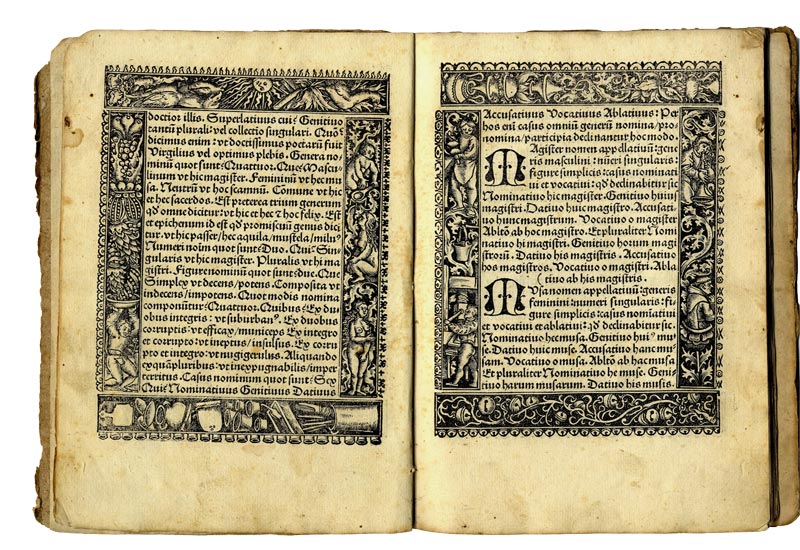 doctior illis. Superlatiuus cui? Genitiuo
tantũ plurali: vel collectio singulari. Quõ
dicimus enim: vt doctissimus poetarũ fuit
Virgilius vel optimus plebis. Genera no
minũ quot sunt: Quattuor. Que? Mascu
linum vt hic magister. Femininũ vt hec mu
sa. Neutrũ vt hoc scamnũ. Comune vt hic
et hec sacerdos. Est preterea trium generum
qd̃ omne dicitur: vt hic et hec ⁊ hoc felix. Est
et epichenum id est qd̃ promiscuũ genus dici
tur. vt hic passer/hec aquila/mustela/miluꝰ
Numeri noĩm quot sunt: Duo. Qui: Sin
gularis vt hic magister. Pluralis vt hi ma
gistri. Figure nominũ quot sunt: due. Que
Simplex vt decens/potens. Composita vt
indecens/impotens. Quot modis nomina
componũtur: Quattuor. Quibus: Ex duo
bus integris: vt suburbanꝰ. Ex duobus
corruptis: vt efficax/municeps Ex integro
et corrupto: vt ineptus/insulsus. Ex corru
pto et integro: vt nugigerulus. Aliquando
ex q̃pluribus: vt inexpugnabilis/imper
territus. Casus nominum quot sunt: Sex
Qui: Nominatiuus Genitiuus Datiuus
Accusatiuus Vocatiuus Ablatiuus: Per
hos em̃ casus omniũ generũ nomina/pro
nomina/participia declinantur hoc modo.
MAgister nomen appellatiuũ gene
ris masculini: nũeri singularis:
figure simplicis: casus nominati
ui et vocatiui: qd̃ declinabitur sic
Nominatiuo hic magister. Genitiuo huius
magistri. Datiuo huic magistro. Accusati
uo hunc magistrum. Vocatiuo o magister
Abltõ ab hoc magistro. Et pluraliter Nomi
natiuo hi magistri. Genitiuo horum magi
strorũ. Datiuo his magistris. Accusatiuo
hos magistros. Vocatiuo o magistri. Abla
(tiuo ab his magistris.
MUsa nomen appellatiuũ: generis
feminini: numeri singularis: fi
gure simplicis: casus nom̃atiui
et vocatiui et ablatiui: qd̃ declinabitur sic.
Nominatiuo hec musa. Genitiuo huiꝰ mu
se. Datiuo huic muse. Accusatiuo hanc mu
sam. Vocatiuo o musa. Abltõ ab hac musa
Et pluraliter Nominatiuo he muse. Geni
tiuo harum musarum. Datiuo his musis.